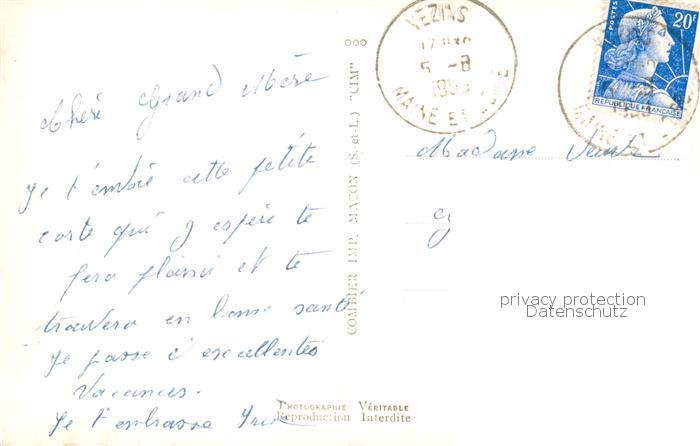 Chère Grand Mère
Je t'envoie cette petite
carte qui j espère te
fera plaisir et te
trouvera en bonne santé
Je passe d'excellentes
Vacances.
Je t'embrasse
COMBIER IMP. MACON (S.-et-L.) "CIM"
PHOTOGRAPHIE VÉRITABLE
Reproduction Interdite
VEZINS
5 -8
MAINE ET LOIRE
POSTES
20F
REPUBLIQUE FRANÇAISE
Madame
privacy protection
Datenschutz